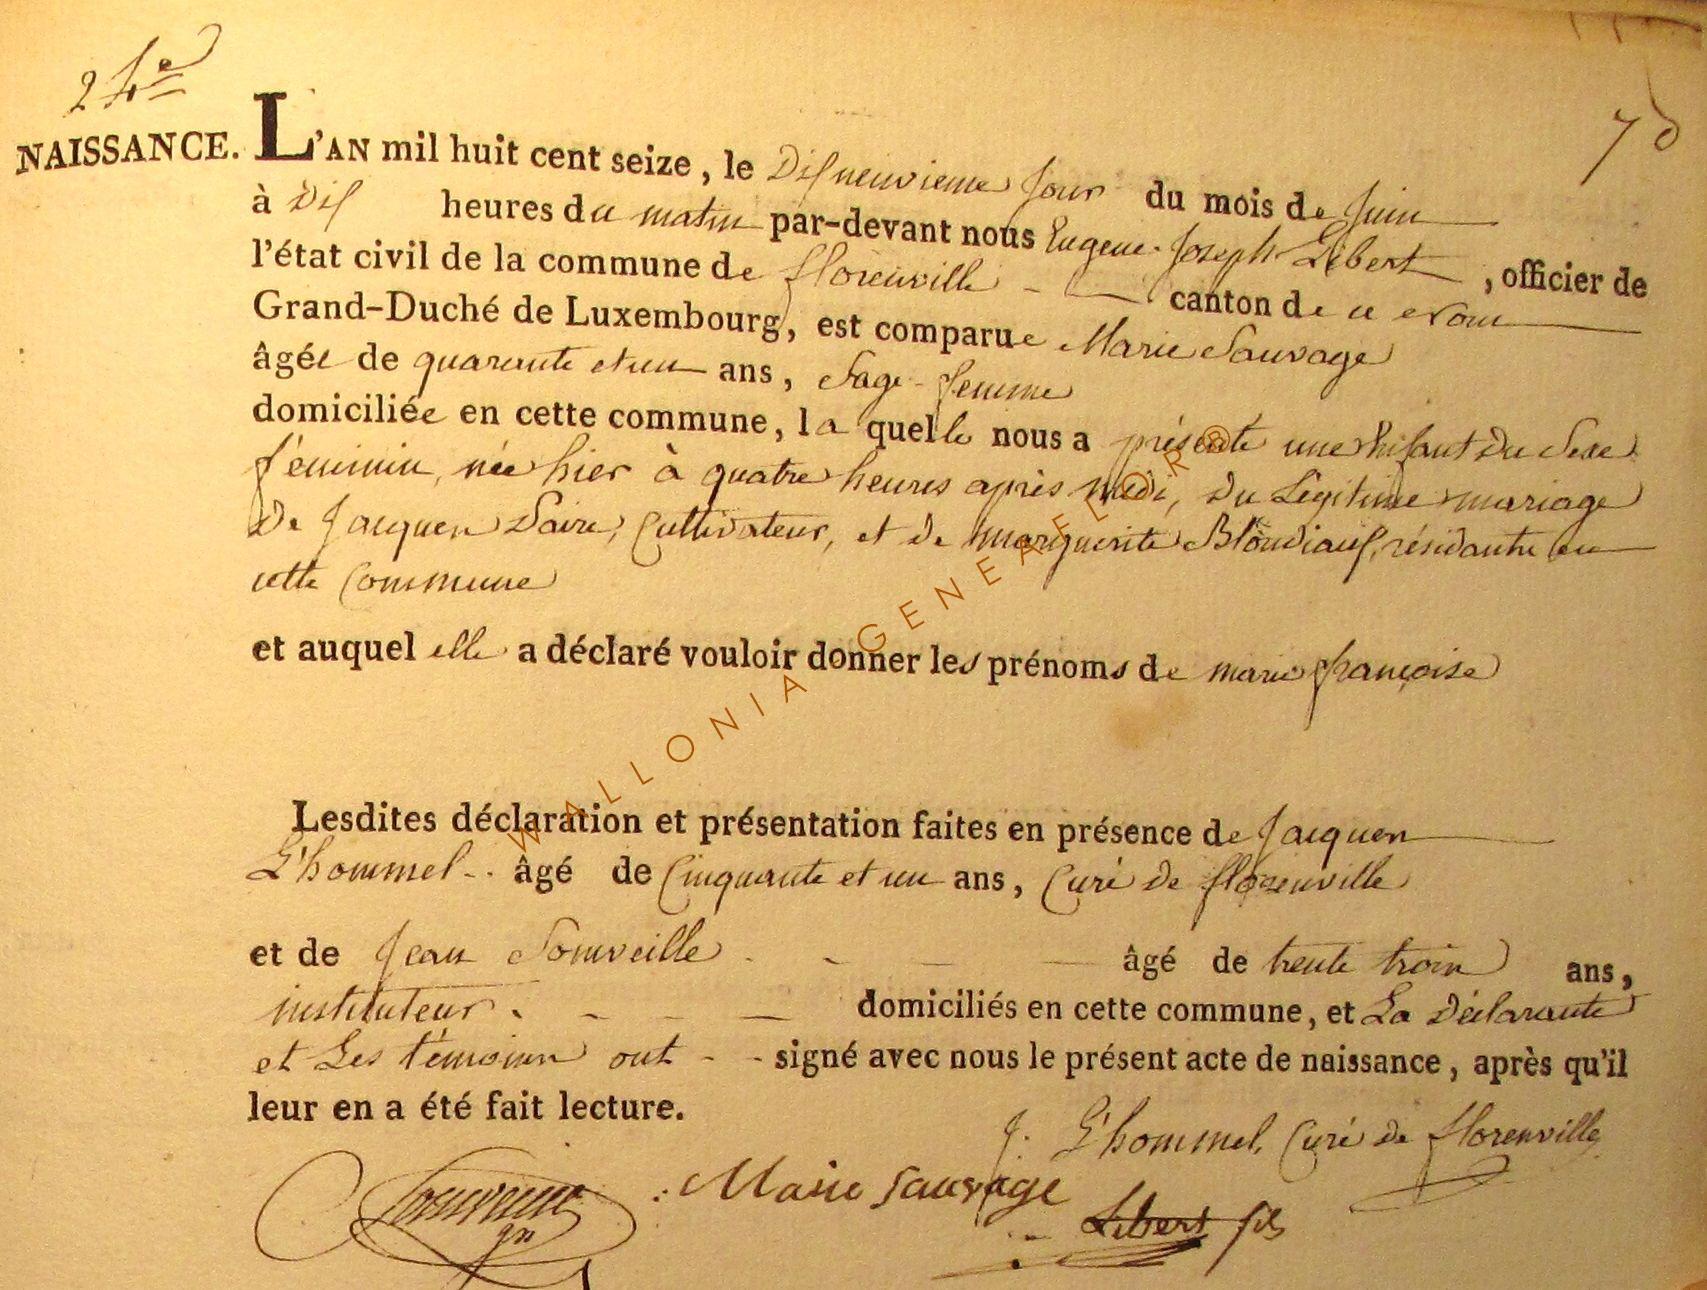 24e
7d
NAISSANCE. L'AN mil huit cent seize, le Dixneuvieme Jour du mois de Juin
à Dix heures du matin par-devant nous Eugene Joseph Libert, officier de
l'état civil de la commune de florenville canton de
Grand-Duché de Luxembourg, est comparue Marie Sauvage
âgée de quarante et un ans, Sage-femme
domiciliée en cette commune, la quelle nous a présenté une Enfant du Sexe
féminin, née hier à quatre heures après midi, du Légitime mariage
De Jacques Cultivateur, et de marguerite résidante en
cette Commune
et auquel elle a déclaré vouloir donner les prénoms de marie françoise
Lesdites déclaration et présentation faites en présence de Jacques
L'hommel âgé de Cinquante et un ans, Curé de florenville
et de Jean Somveille âgé de trente trois ans,
instituteur domiciliés en cette commune, et La Déclarante
et Les témoins ont signé avec nous le présent acte de naissance, après qu'il
leur en a été fait lecture.
J. L'hommel, Curé de florenville
Somveille : Marie Sauvage
Libert fils
WALLONIA GENEAFLOR®